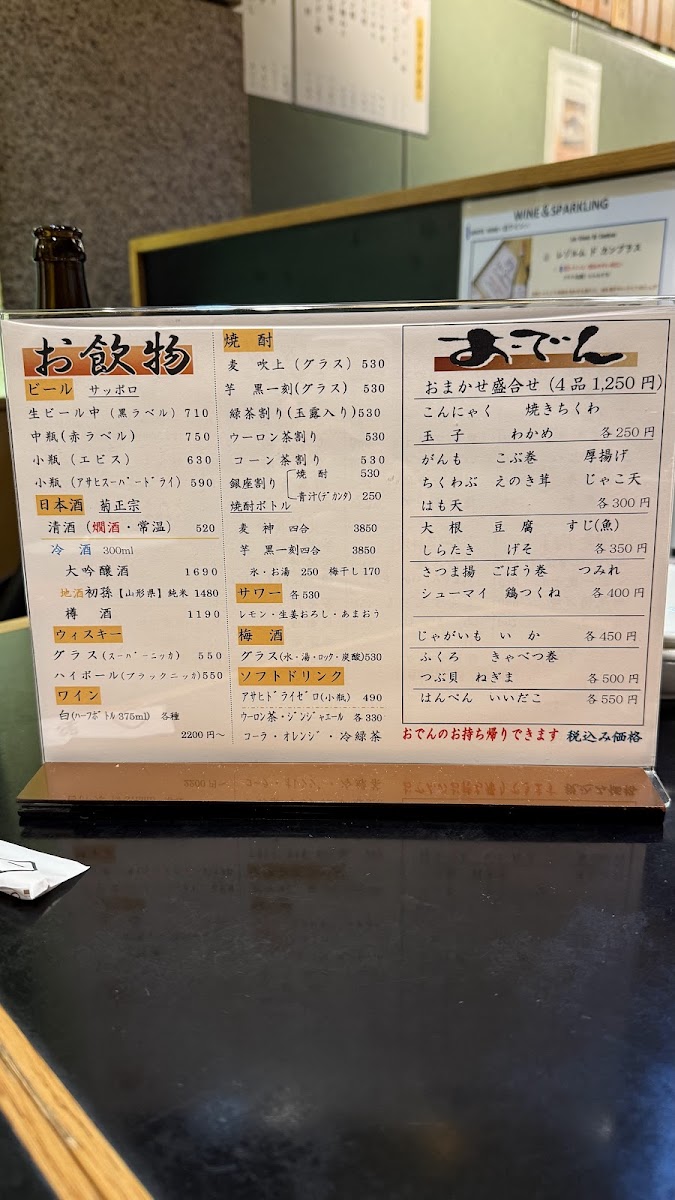 WINE & SPARKLING
レゾルム ド カンブラス
お飲物
ビール サッポロ
生ビール中 (黒ラベル) 710
中瓶(赤ラベル) 750
小瓶 (エビス) 630
小瓶 (アサヒスーパードライ) 590
日本酒 菊正宗
清酒 (燗酒・常温) 520
冷 酒 300ml
大吟醸酒 1690
地酒 初孫【山形県】純米 1480
樽 酒 1190
ウィスキー
グラス(スーパーニッカ) 550
ハイボール(ブラックニッカ) 550
ワイン
白(ハーフボトル 375ml) 各種
2200円〜
焼 酎
麦 吹上 (グラス) 530
芋 黒一刻(グラス) 530
緑茶割り(玉露入り) 530
ウーロン茶割り 530
コーン茶割り 530
銀座割り 焼 酎 530
青汁(デカンタ) 250
焼酎ボトル
麦 神 四合 3850
芋 黒一刻四合 3850
氷・お湯 250 梅干し 170
サワー 各530
レモン・生姜おろし・あまおう
梅 酒
グラス(水・湯・ロック・炭酸) 530
ソフトドリンク
アサヒドライゼロ(小瓶) 490
ウーロン茶・ジンジャエール 各330
コーラ・オレンジ・冷緑茶
おでん
おまかせ盛合せ (4品 1,250円)
こんにゃく 焼きちくわ
玉 子 わかめ 各250円
がんも こぶ巻 厚揚げ
ちくわぶ えのき茸 じゃこ天
はも天 各300円
大 根 豆 腐 すじ(魚)
しらたき げそ 各350円
さつま揚 ごぼう巻 つみれ
シューマイ 鶏つくね 各400円
じゃがいも い か 各450円
ふくろ きゃべつ巻
つぶ貝 ねぎま 各500円
はんぺん いいだこ 各550円
おでんのお持ち帰りできます 税込み価格